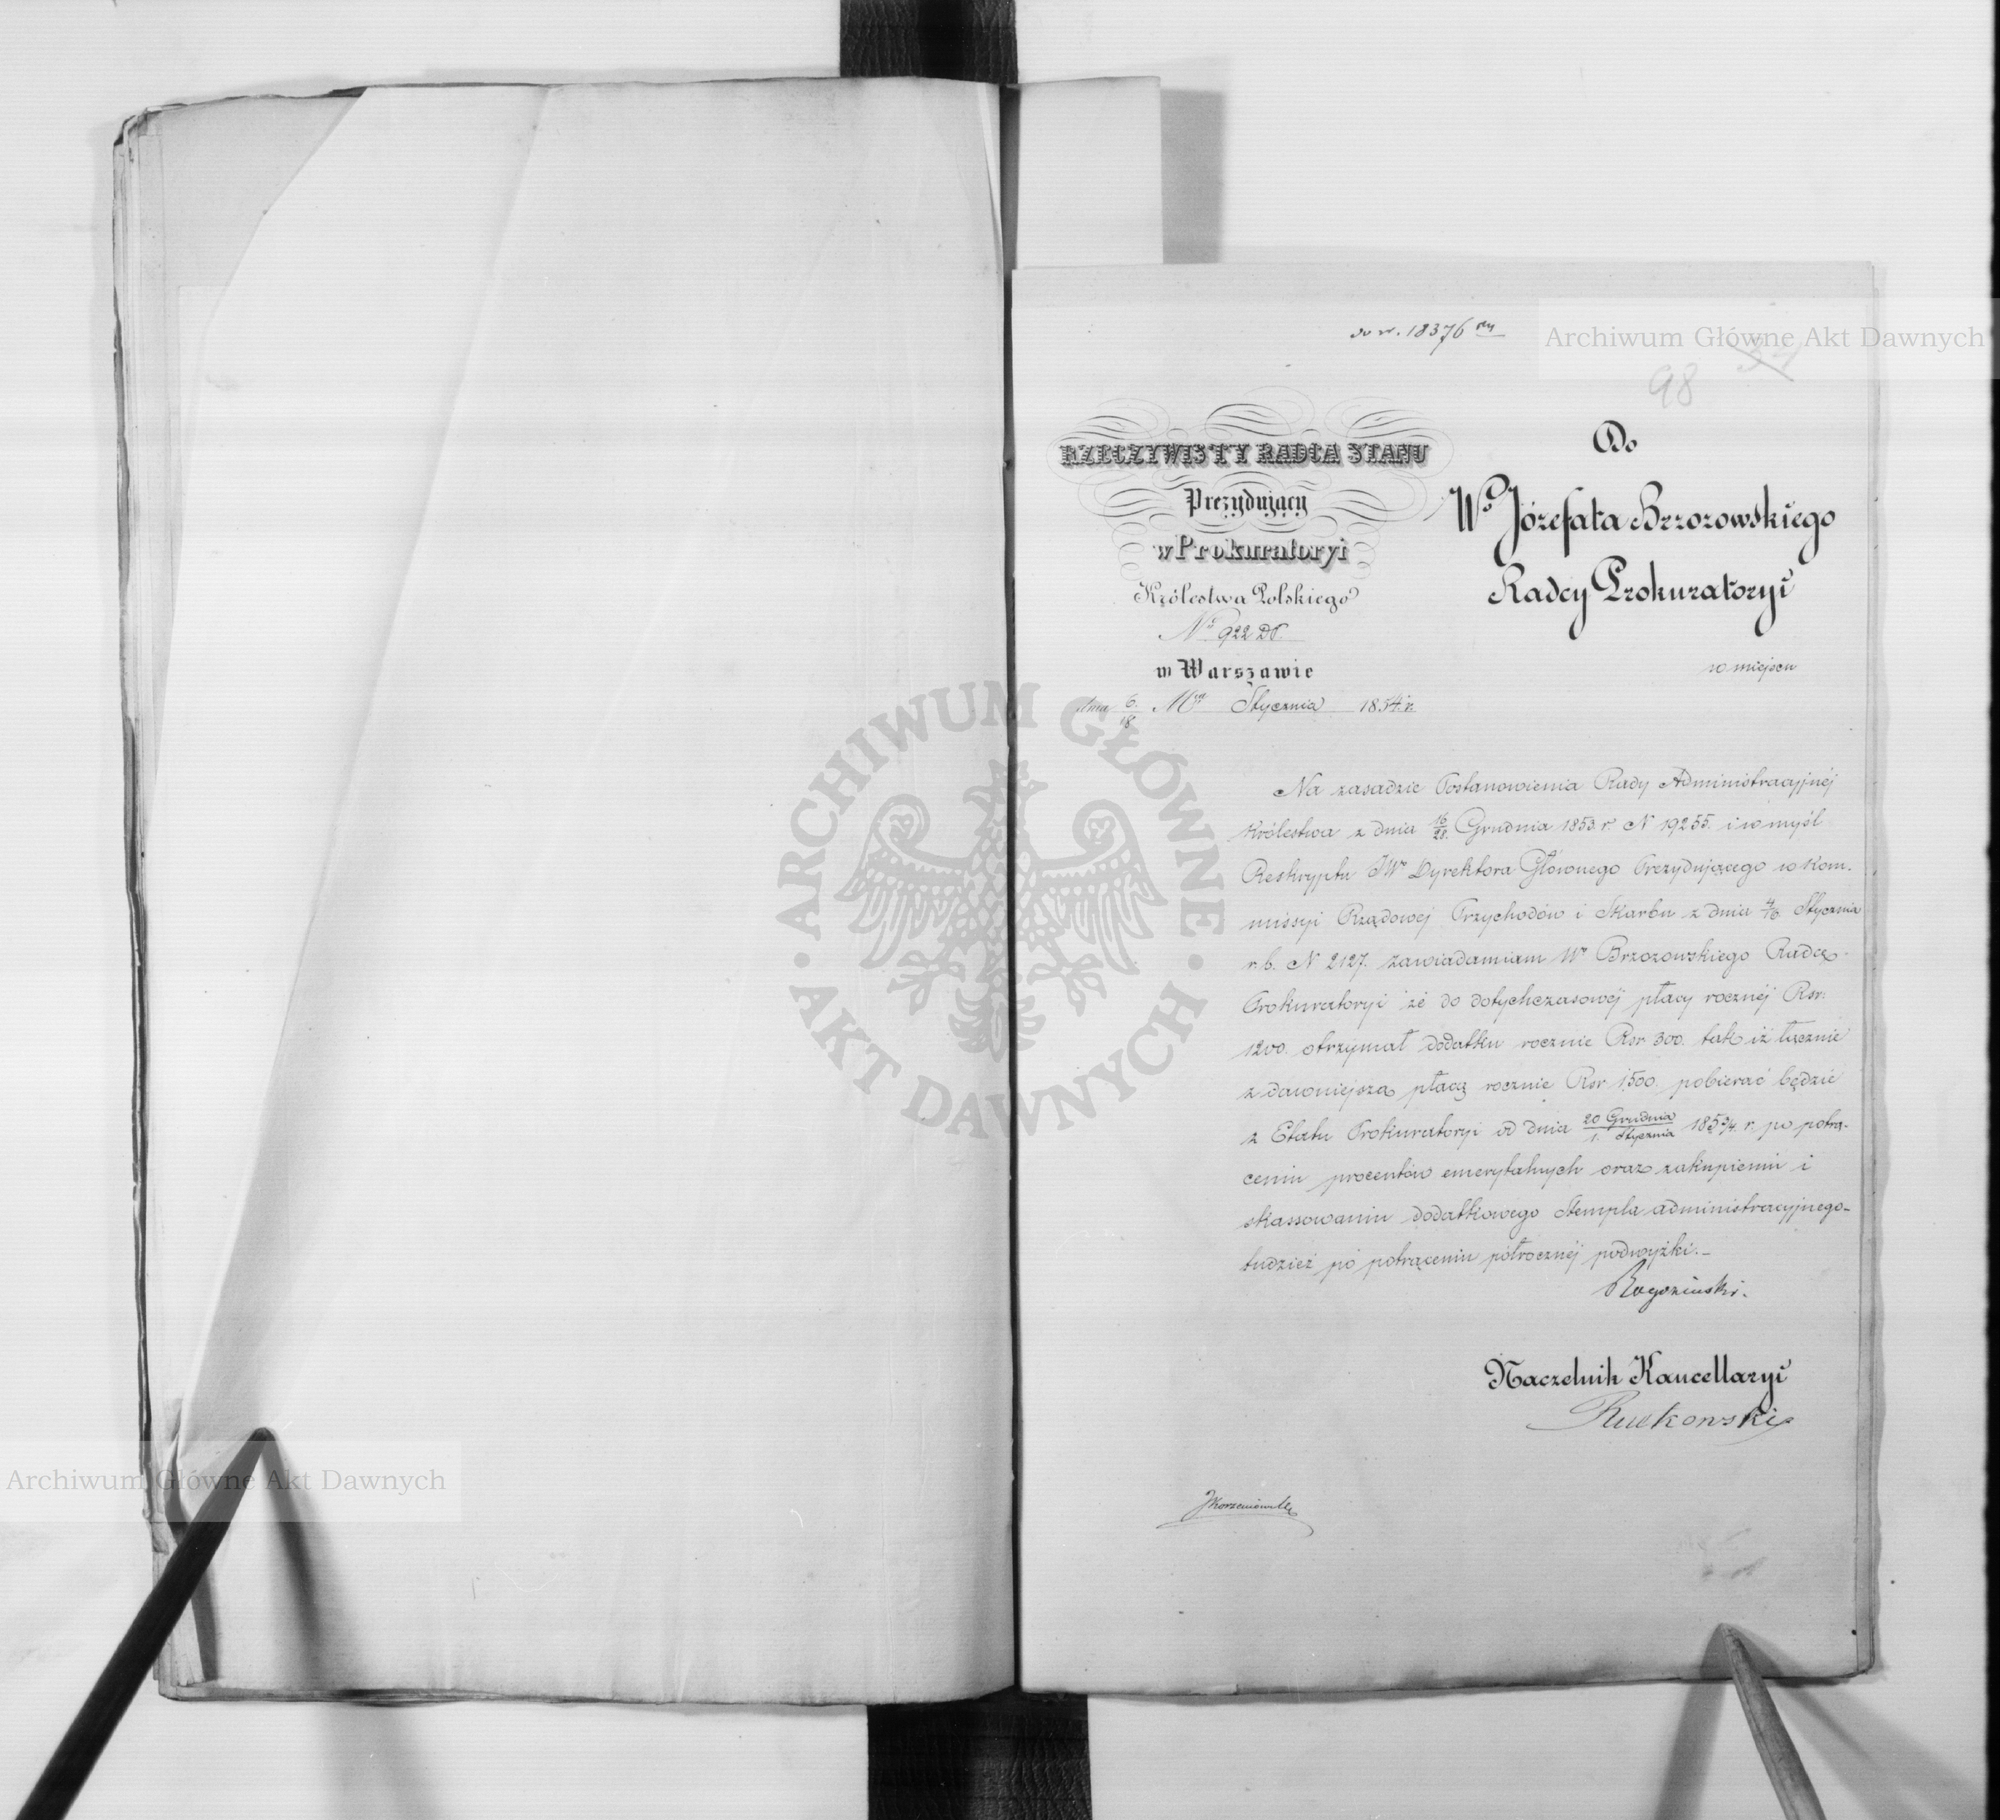 do N. 18376
Archiwum Główne Akt Dawnych
98
RZECZYWISTY RADCA STANU
Prezydujący
w Prokuratoryi
Królestwa Polskiego
No 922 DP.
w Warszawie
dnia 6/18 Mca Stycznia 1854 r.
Do
Wo Józefata Brzozowskiego
Radcy Prokuratoryi
w miejscu
Na zasadzie Postanowienia Rady Administracyjnéj
Królestwa z dnia 16/28 Grudnia 1853 r. N 19255. i w myśl
Reskryptu JWo Dyrektora Głównego Prezydującego w Kom-
missyi Rządowéj Przychodów i Skarbu z dnia Stycznia
r. b. N 2127. zawiadamiam Wo Brzozowskiego Radcę
Prokuratoryi że do dotychczasowéj płacy rocznéj Rsr:
1200. otrzymał dodatku rocznie Rsr 300. tak iż łącznie
z dawniejszą płacą rocznie Rsr 1500. pobierać będzie
z Etatu Prokuratoryi od dnia 20 Grudnia/1. Stycznia 1853/4. r. po potrą-
ceniu procentów emerytalnych oraz zakupieniu i
skassowaniu dodatkowego Stempla administracyjnego
tudzież po potrąceniu półrocznéj podwyżki.
Rogoziński.
Naczelnik Kancellaryi
Rutkowski
JKorzeniowski
ARCHIWUM GŁÓWNE
AKT DAWNYCH
Archiwum Główne Akt Dawnych